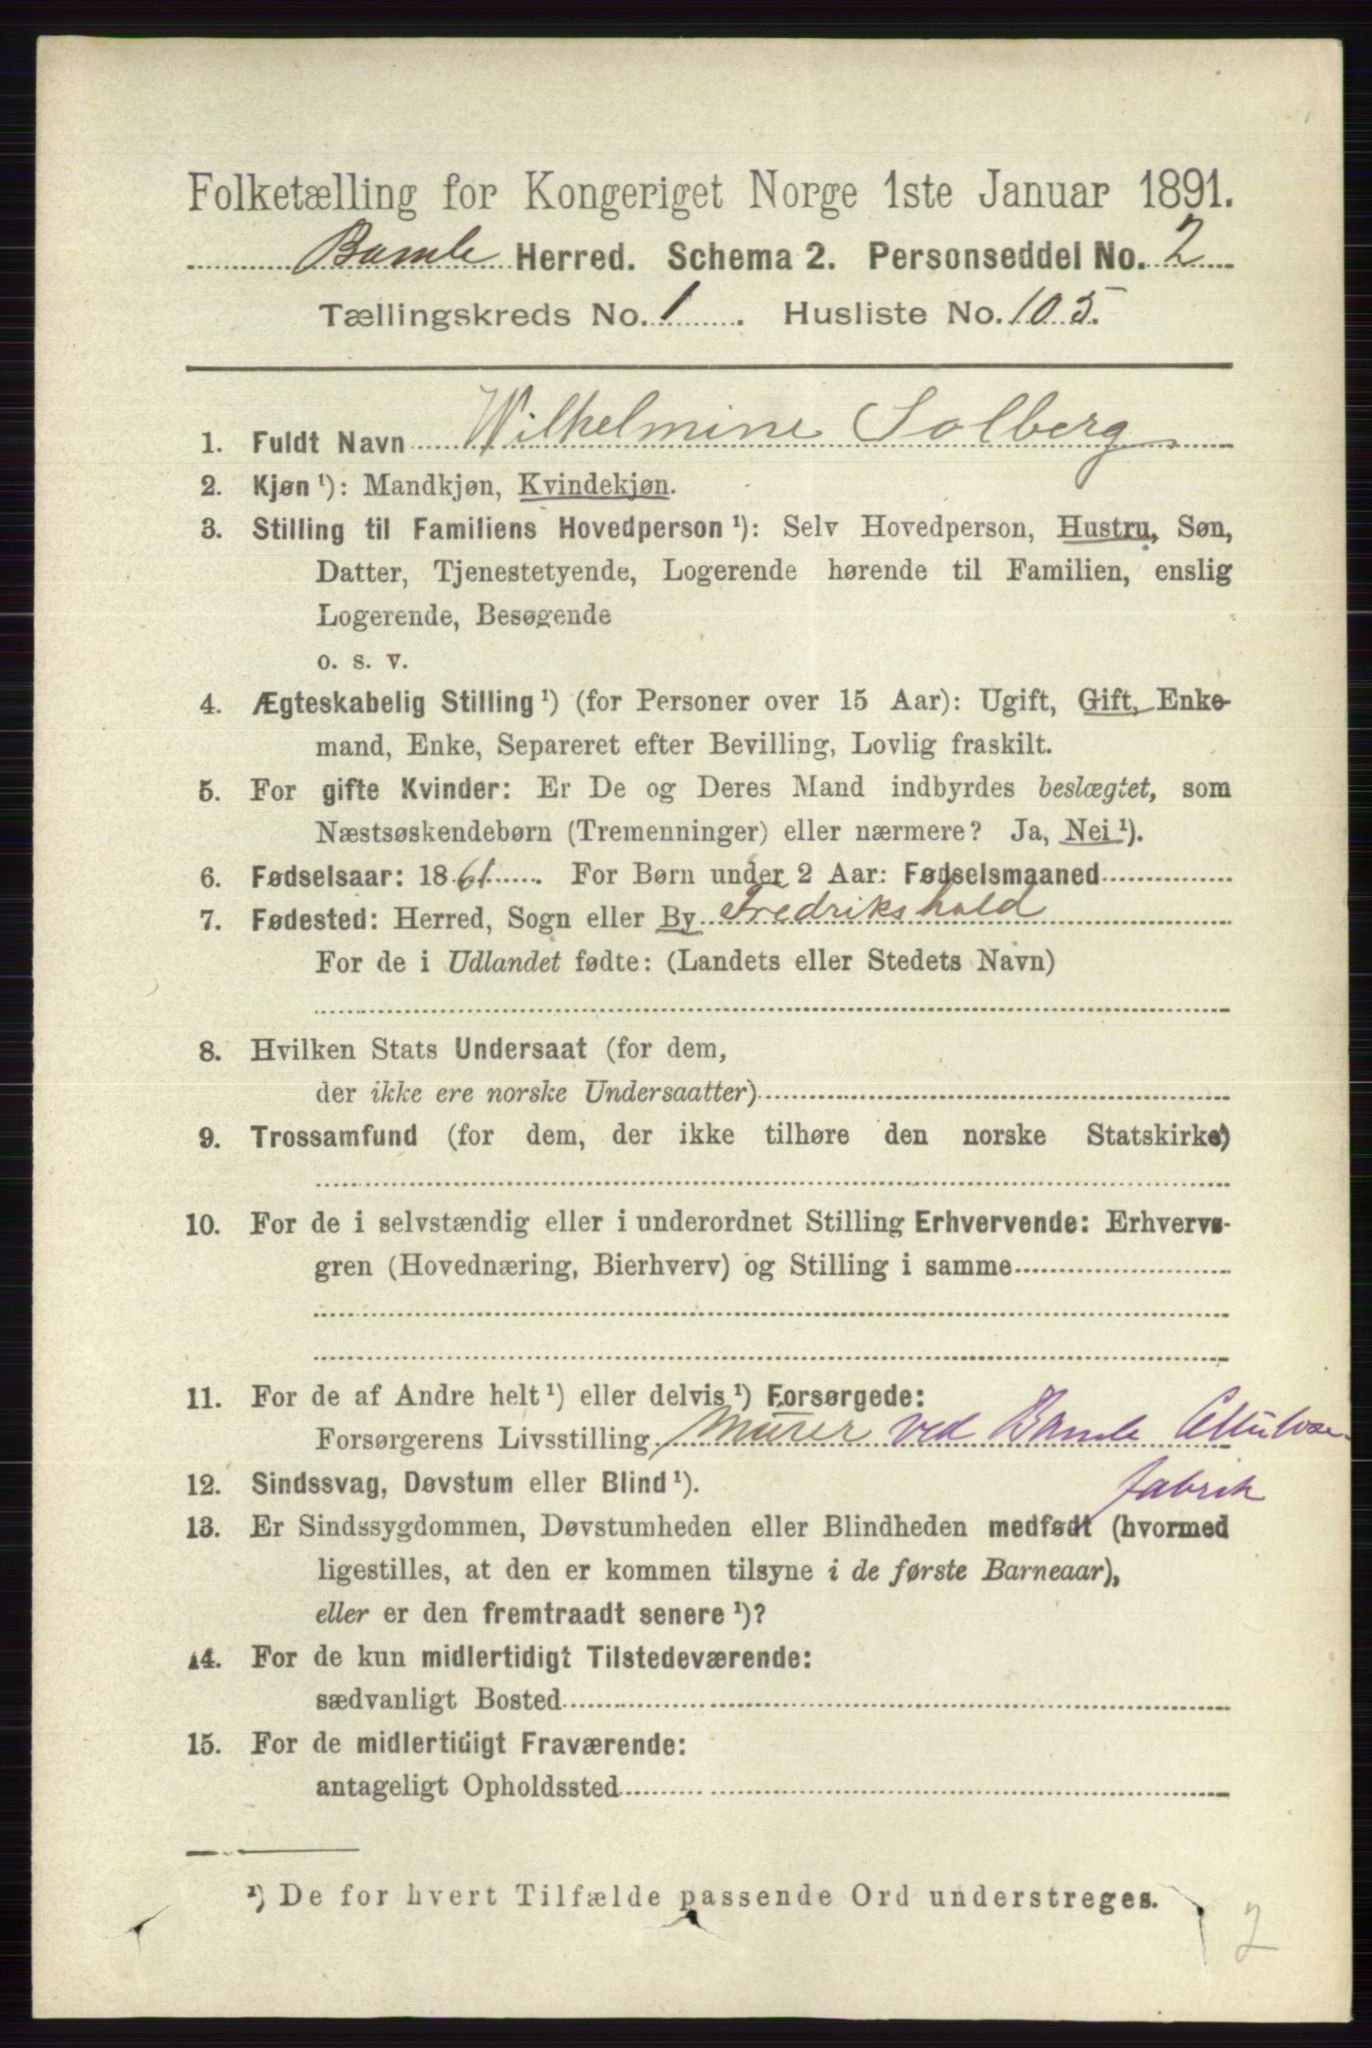 Folketælling for Kongeriget Norge 1ste Januar 1891.
Bamle Herred. Schema 2. Personseddel No. 2
Tællingskreds No. 1. Husliste No. 105.
1. Fuldt Navn Wilhelmine Solberg
2. Kjøn ¹): Mandkjøn, Kvindekjøn.
3. Stilling til Familiens Hovedperson ¹): Selv Hovedperson, Hustru, Søn,
Datter, Tjenestetyende, Logerende hørende til Familien, enslig
Logerende, Besøgende
o. s. v.
4. Ægteskabelig Stilling ¹) (for Personer over 15 Aar): Ugift, Gift, Enke-
mand, Enke, Separeret efter Bevilling, Lovlig fraskilt.
5. For gifte Kvinder: Er De og Deres Mand indbyrdes beslægtet, som
Næstsøskendebørn (Tremenninger) eller nærmere? Ja, Nei ¹).
6. Fødselsaar: 1861. For Børn under 2 Aar: Fødselsmaaned
7. Fødested: Herred, Sogn eller By Fredrikshald
For de i Udlandet fødte: (Landets eller Stedets Navn)
8. Hvilken Stats Undersaat (for dem,
der ikke ere norske Undersaatter)
9. Trossamfund (for dem, der ikke tilhøre den norske Statskirke)
10. For de i selvstændig eller i underordnet Stilling Erhvervende: Erhvervs-
gren (Hovednæring, Bierhverv) og Stilling i samme
11. For de af Andre helt ¹) eller delvis ¹) Forsørgede:
Forsørgerens Livsstilling Murer ved Bamle Cellulose
fabrik
12. Sindssvag, Døvstum eller Blind ¹).
13. Er Sindssygdommen, Døvstumheden eller Blindheden medfødt (hvormed
ligestilles, at den er kommen tilsyne i de første Barneaar),
eller er den fremtraadt senere ¹)?
14. For de kun midlertidigt Tilstedeværende:
sædvanligt Bosted
15. For de midlertidigt Fraværende:
antageligt Opholdssted
¹) De for hvert Tilfælde passende Ord understreges.
2